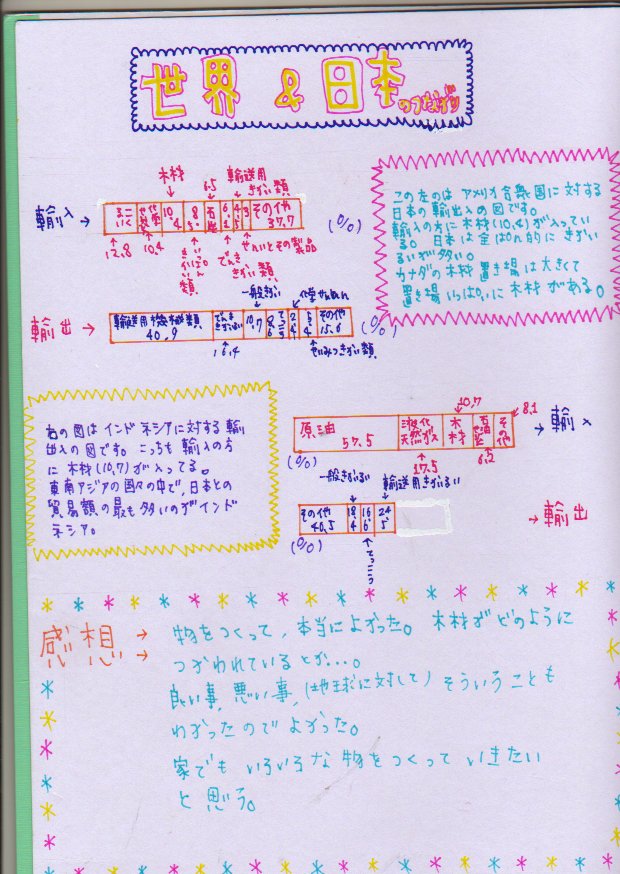 世界 & 日本のつながり
木材
6.5
輸送用きかい類
輸入 →
10.4
8
石炭
6.2
4.5
3
その他 37.7
(%)
12.8
10.4
でんききかい類
せんいとその製品
この左のは アメリカ合衆国に対する
日本の輸出入の図です。
輸入の方に木材(10.4)が入ってい
る。日本は全ぱん的に きかい
るいが多い。
カナダの木材置き場は大きくて
置き場いっぱいに木材がある。
一般きかい
輸出 →
輸送用機械類 40.9
でんききかいるい
10.7
その他 15.6
(%)
16.4
せいみつきかい類
右の図は インドネシアに対する輸
出入の図です。こっちも輸入の方
に木材(10.7)が入ってる。
東南アジアの国々の中で、日本との
貿易額の最も多いのがインド
ネシア。
10.7
8.1
原油 57.5
液化天然ガス
木材
その他
→ 輸入
(%)
17.5
6.2
一般きかいるい
輸送用きかいるい
その他 40.5
18.4
16.6
24.5
→ 輸出
(%)
てっこう
感想 →
物をつくって、本当によかった。木材がどのように
つかわれているとか…。
良い事、悪い事、(地球に対して) そういうことも
わかったのでよかった。
家でも いろいろな物をつくって いきたい
と思う。